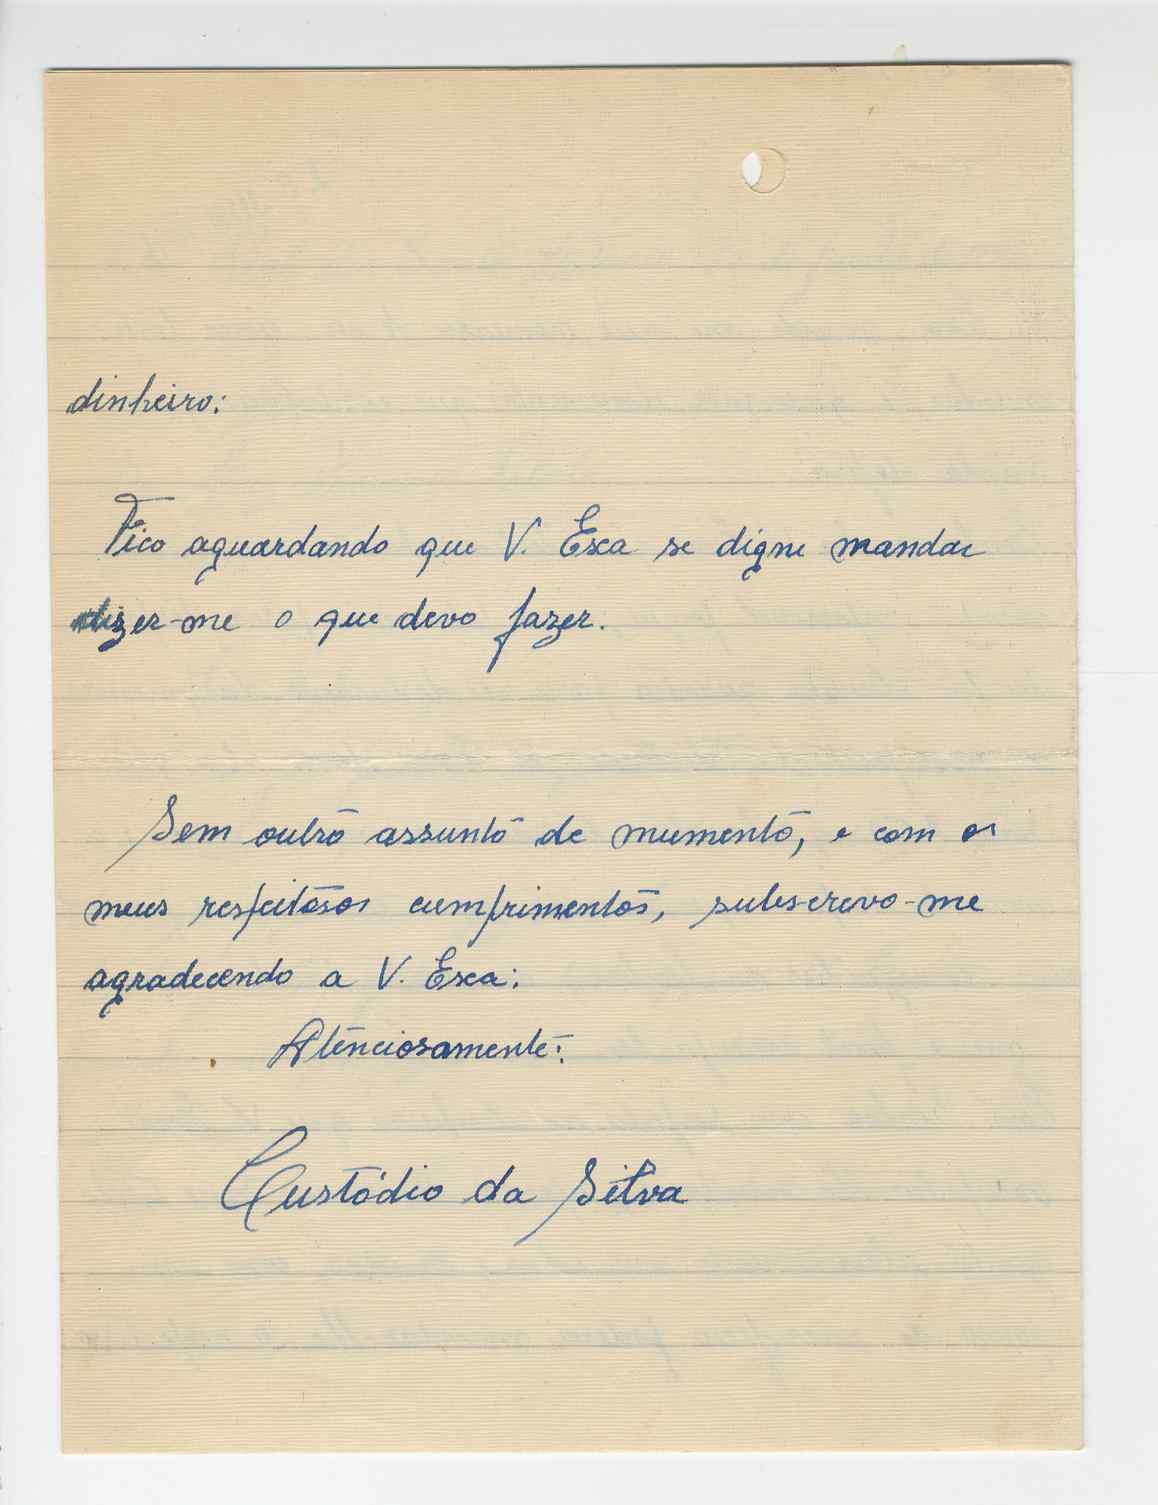 dinheiro:
Fico aguardando que V. Exca se digne mandar
dizer-me o que devo fazer.
Sem outro assunto de mumento, e com os
meus respeitosos cumprimentos, subscrevo-me
agradecendo a V. Exca:
Atenciosamente:
Custódio da Silva